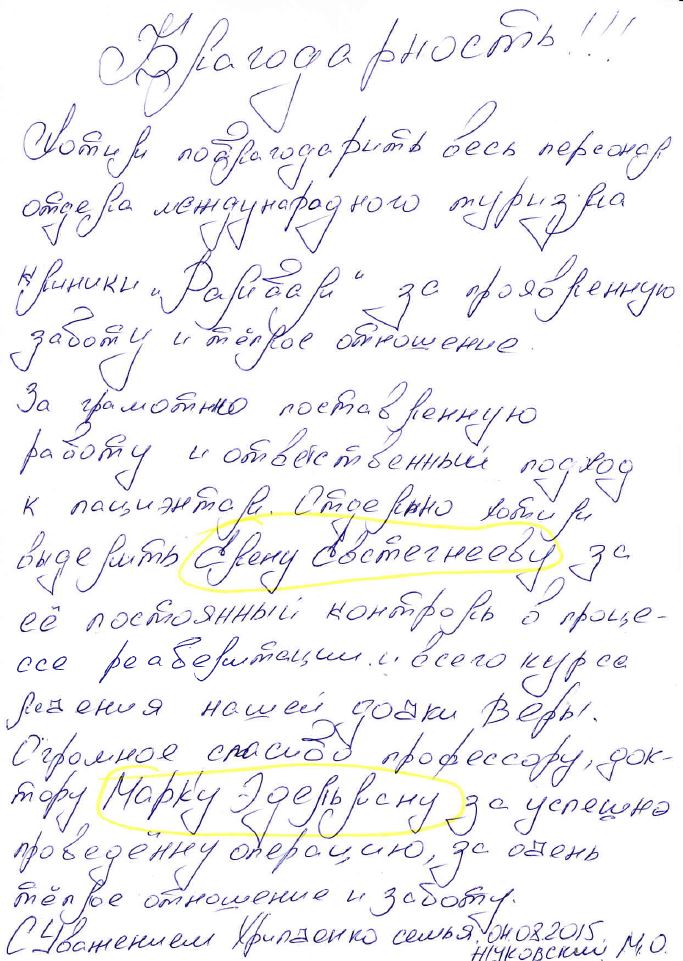 Благодарность!!!
Хотим поблагодарить весь персонал
отдела международного туризма
клиники „Рамбам“ за проявленную
заботу и тёплое отношение.
За грамотно поставленную
работу и ответственный подход
к пациентам. Отдельно хотим
выделить Елену Евстегнееву за
её постоянный контроль в проце-
ссе реабелитации и всего курса
лечения нашей дочки Веры.
Огромное спасибо профессору, док-
тору Марку Эдельману за успешно
проведённу операцию, за очень
тёплое отношение и заботу.
С Уважением Хрипченко семья, 04.08.2015
М.О.